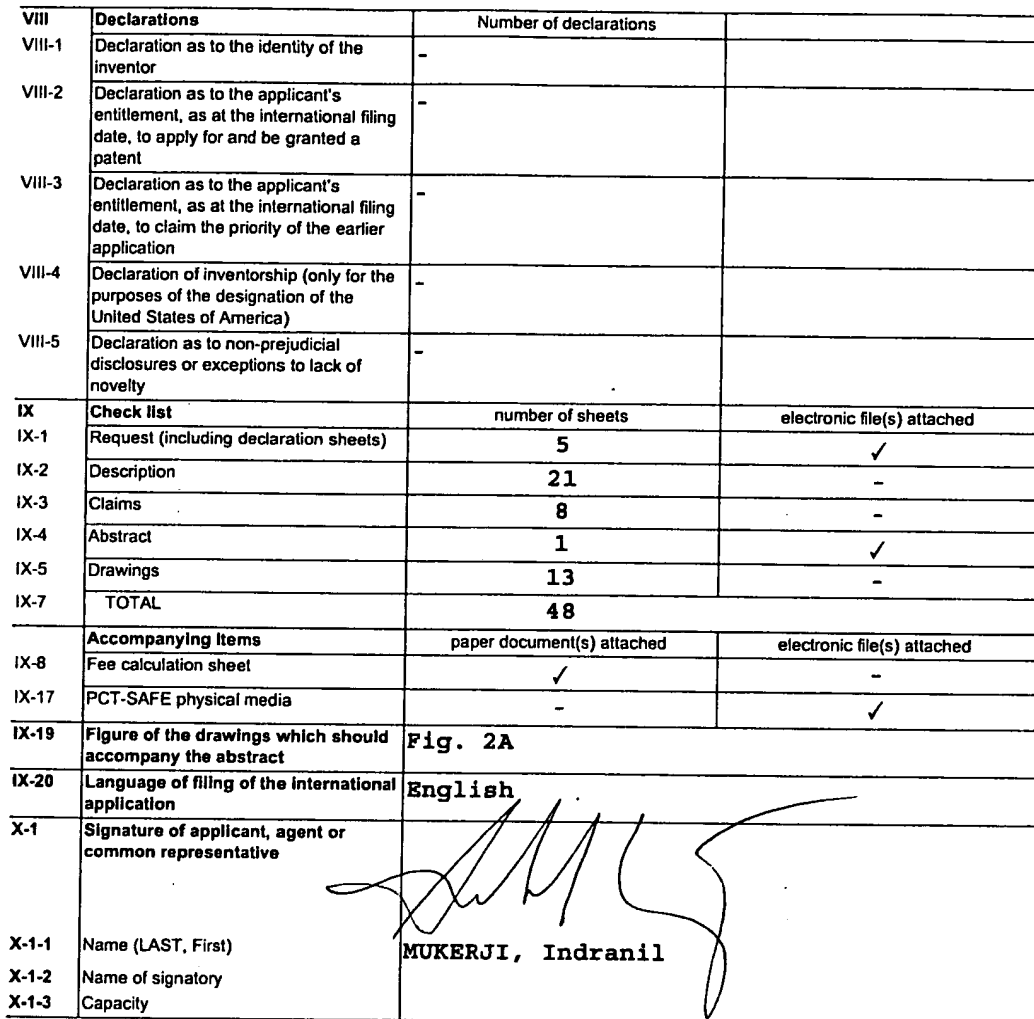 VIII Declarations Number of declarations
VIII-1 Declaration as to the identity of the
inventor -
VIII-2 Declaration as to the applicant's
entitlement, as at the international filing
date, to apply for and be granted a
patent -
VIII-3 Declaration as to the applicant's
entitlement, as at the international filing
date, to claim the priority of the earlier
application -
VIII-4 Declaration of inventorship (only for the
purposes of the designation of the
United States of America) -
VIII-5 Declaration as to non-prejudicial
disclosures or exceptions to lack of
novelty -
IX Check list number of sheets electronic file(s) attached
IX-1 Request (including declaration sheets) 5 ✓
IX-2 Description 21 -
IX-3 Claims 8 -
IX-4 Abstract 1 ✓
IX-5 Drawings 13 -
IX-7 TOTAL 48
Accompanying Items paper document(s) attached electronic file(s) attached
IX-8 Fee calculation sheet ✓ -
IX-17 PCT-SAFE physical media - ✓
IX-19 Figure of the drawings which should
accompany the abstract Fig. 2A
IX-20 Language of filing of the international
application English
X-1 Signature of applicant, agent or
common representative
X-1-1 Name (LAST, First) MUKERJI, Indranil
X-1-2 Name of signatory
X-1-3 Capacity